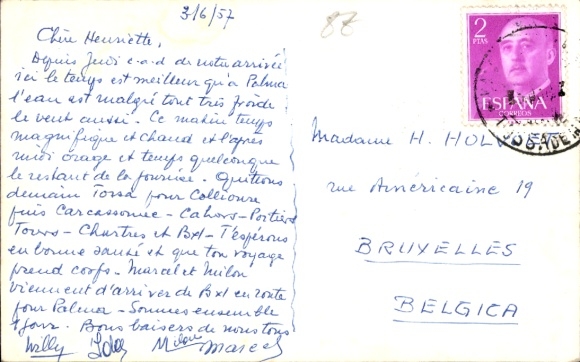 3/6/57
88
Chère Henriette,
Depuis Jeudi c.a.d. de notre arrivée
ici le temps est meilleur qu'à Palma
l'eau est malgré tout très froide
le vent aussi. Ce matin temps
magnifique et chaud et l'après
midi orage et temps quelconque
le restant de la journée. Quittons
demain Tossa pour Collioure
puis Carcassonne - Cahors - Poitiers
Tours - Chartres et Bxl - T'espérons
en bonne santé et que ton voyage
prend corps - Marcel et Milou
viennent d'arriver de Bxl en route
pour Palma - Sommes ensemble
1 jour. Bons baisers de nous tous
Willy Milou Marcel
2
PTAS
ESPAÑA
CORREOS
Madame H.
rue Américaine 19
BRUXELLES
BELGICA